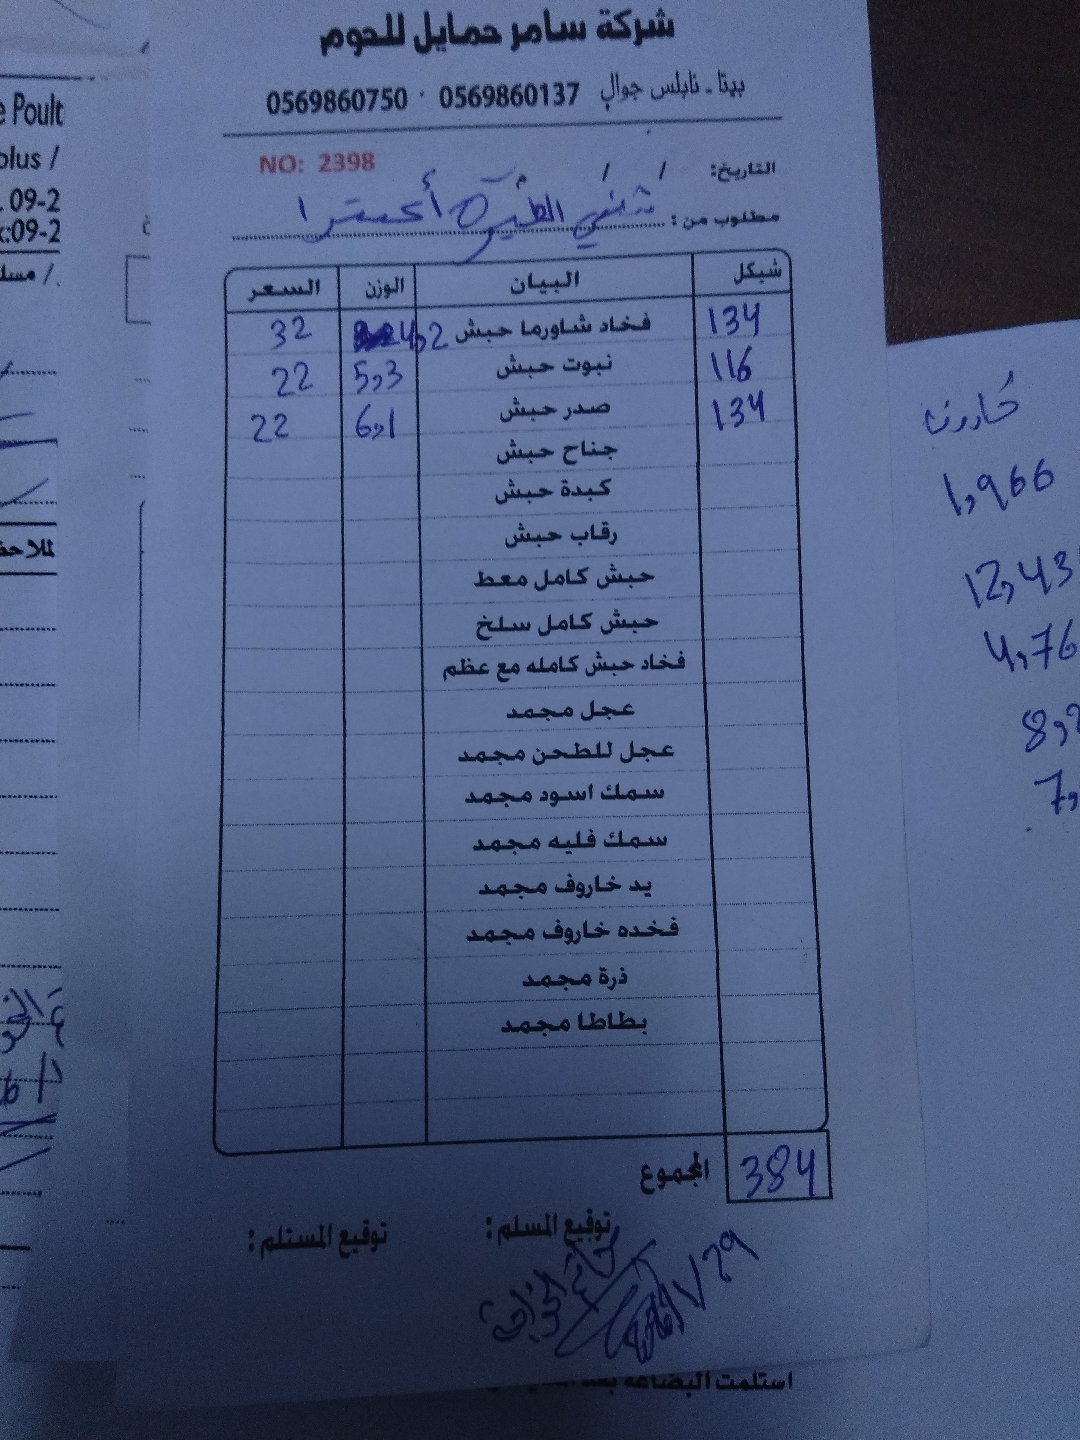 شركة سامر حمايل للحوم
بيتا - نابلس جوال 0569860137 · 0569860750
NO: 2398
التاريخ: / /
مطلوب من :
شيكل البيان الوزن السعر
134 فخاد شاورما حبش 4,2 32
116 نبوت حبش 5,3 22
134 صدر حبش 6,1 22
جناح حبش
كبدة حبش
رقاب حبش
حبش كامل معط
حبش كامل سلخ
فخاد حبش كامله مع عظم
عجل مجمد
عجل للطحن مجمد
سمك اسود مجمد
سمك فليه مجمد
يد خاروف مجمد
فخده خاروف مجمد
ذرة مجمد
بطاطا مجمد
المجموع 384
توقيع المسلم : توقيع المستلم :
استلمت البضاعه
e Poult
olus /
. 09-2
x:09-2
1,966
12,43
4,76